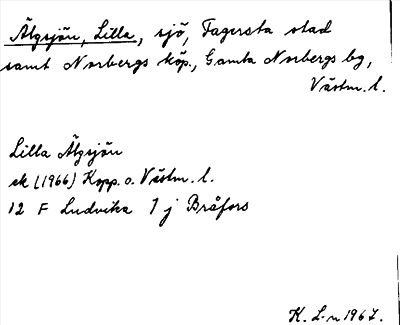 Älgsjön, Lilla, sjö, Fagersta stad
samt Norbergs köp., Gamla Norbergs bg,
Västm. l.
Lilla Älgsjön
ek (1966) Kopp. o. Västm. l.
12 F Ludvika 7 j Bråfors
K. L-n 1967.